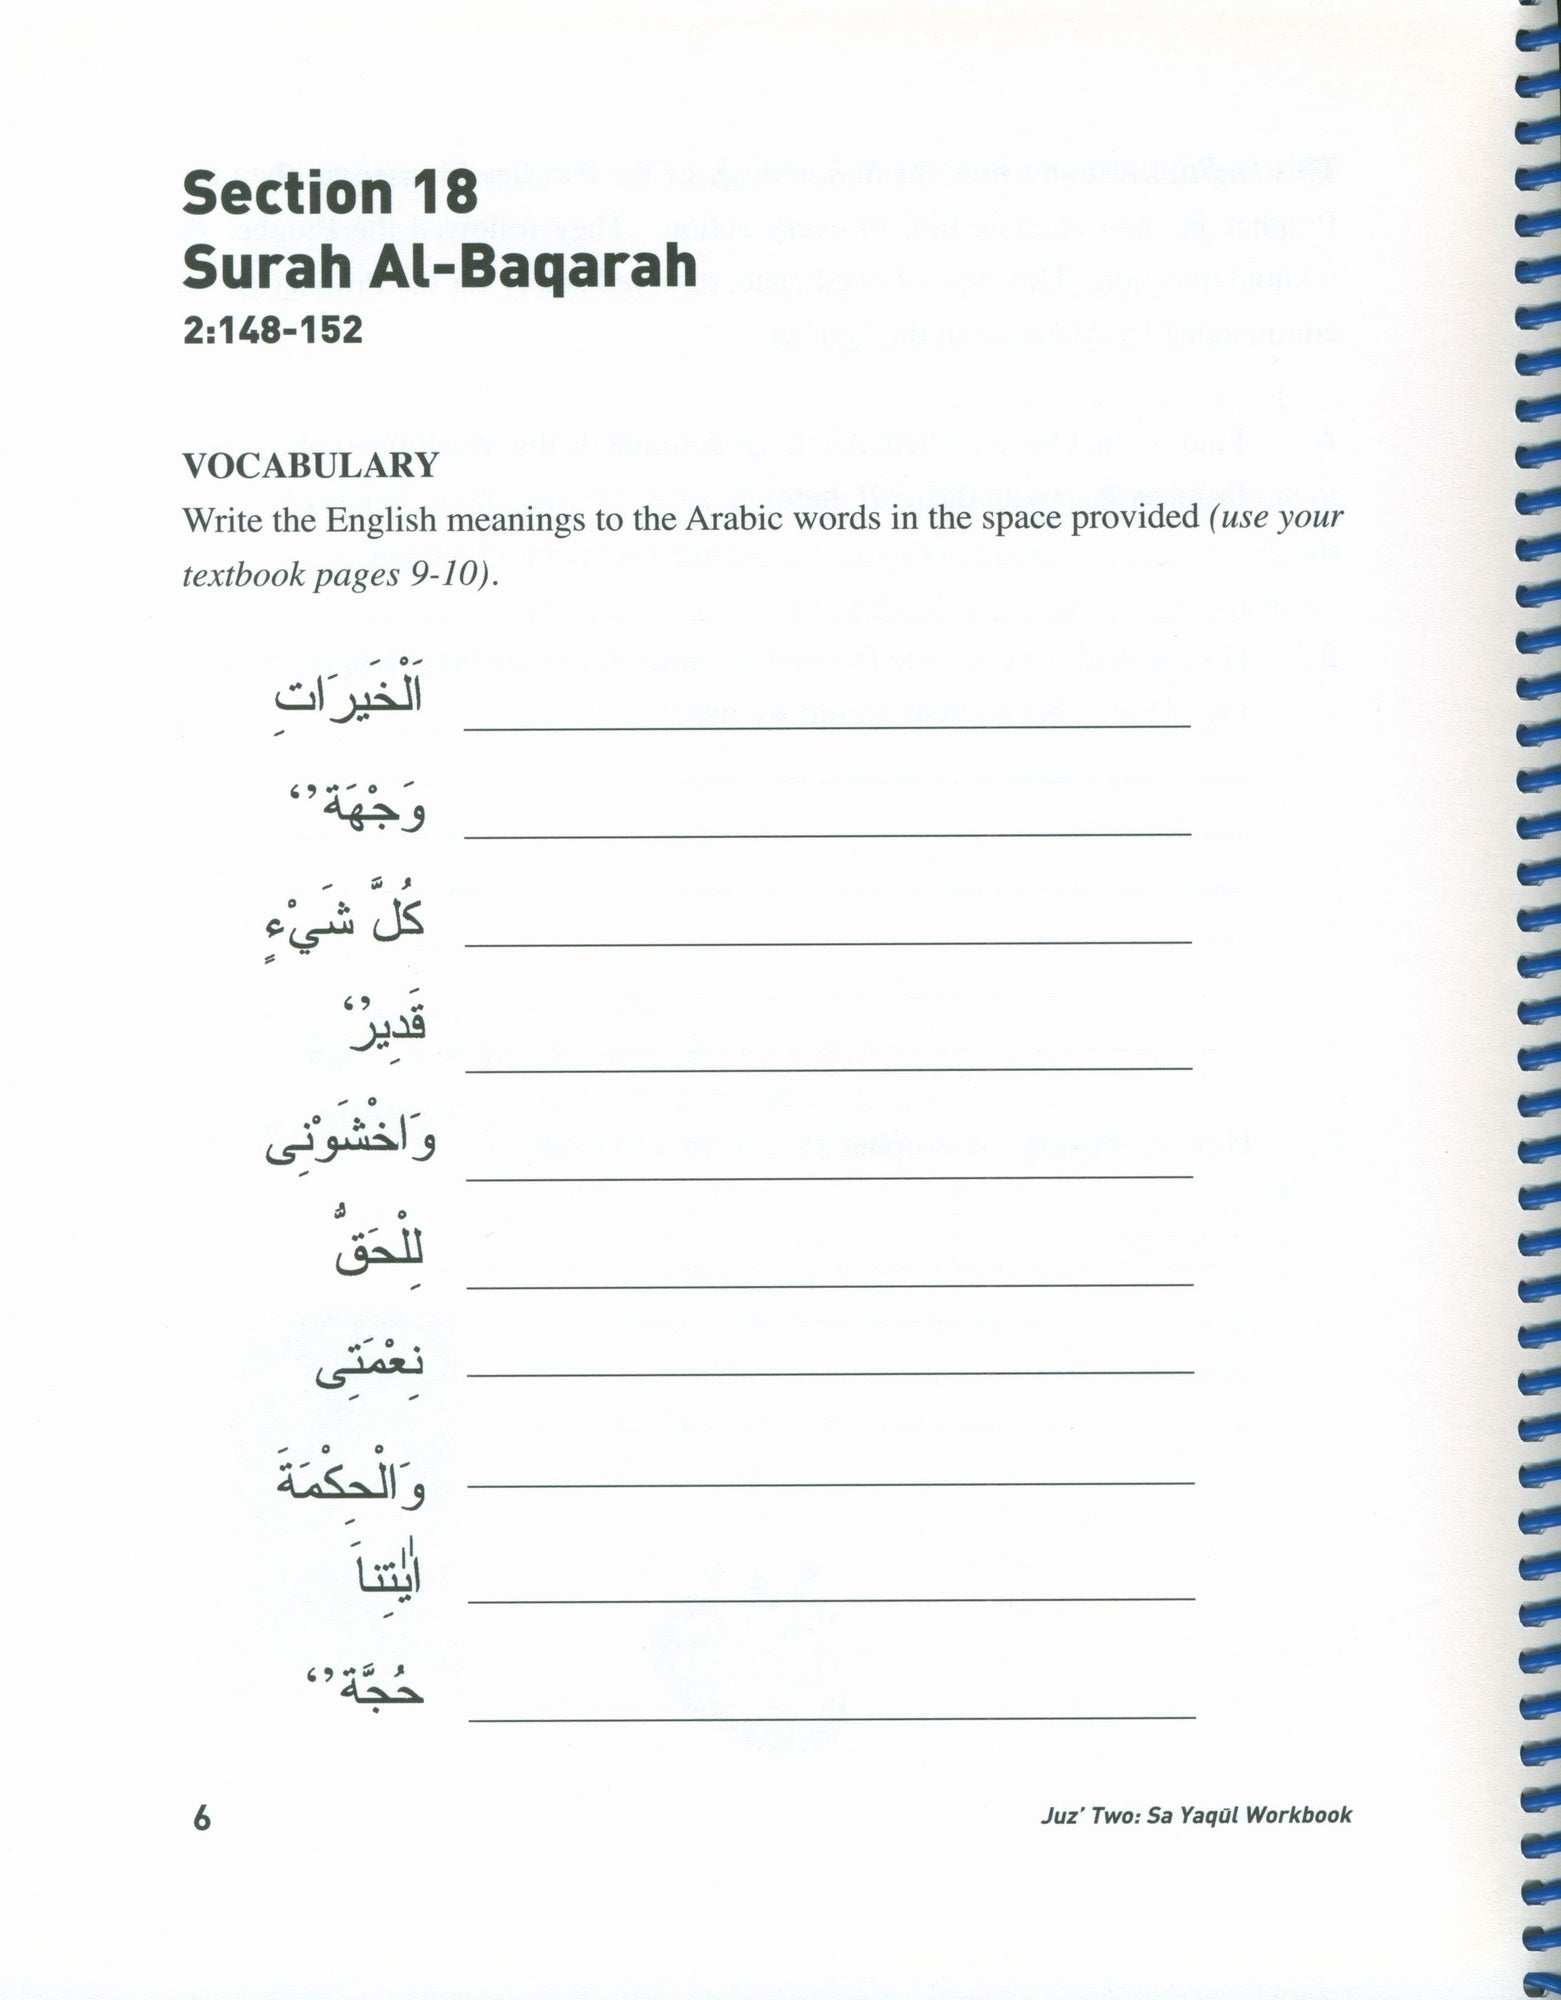 Section 18
Surah Al-Baqarah
2:148-152
VOCABULARY
Write the English meanings to the Arabic words in the space provided (use your
textbook pages 9-10).
اَلْخَيرَاتِ
وَجْهَةٌ
كُلَّ شَيْءٍ
قَدِيرٌ
وَاخْشَوْنِى
لِلْحَقُّ
نِعْمَتِى
وَالْحِكْمَةَ
اٰيٰتِنَا
حُجَّةٌ
6
Juz’ Two: Sa Yaqūl Workbook